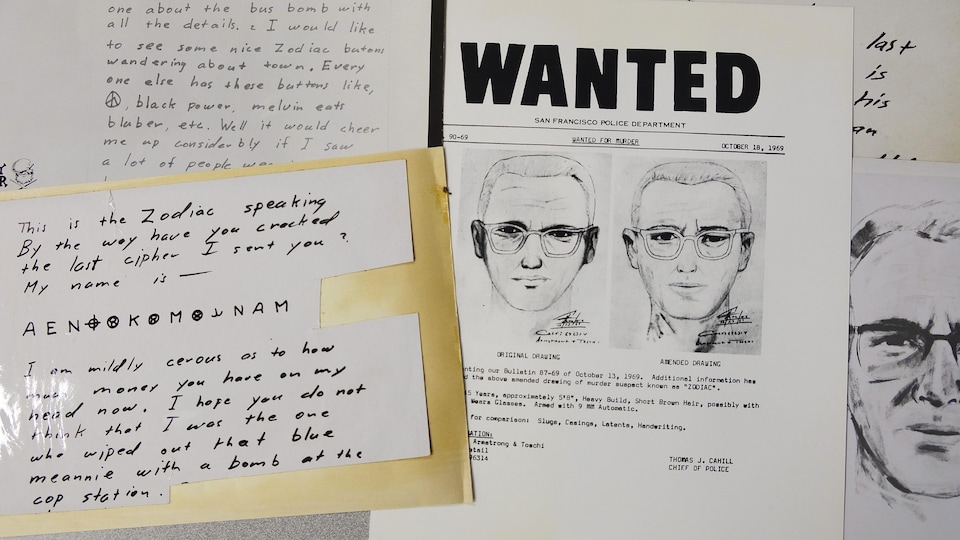 one about the bus bomb with
all the details. I would like
to see some nice Zodiac butons
wandering about town. Every
one else has these buttons like,
black power, melvin eats
bluber, etc. Well it would cheer
me up considerbly if I saw
a lot of people
This is the Zodiac speaking
By the way have you cracked
the last cipher I sent you?
My name is —
A E N ⌖ ⊗ K ⊗ M ⊗ ⅃ N A M
I am mildly cerous as to how
much money you have on my
head now. I hope you do not
think that I was the one
who wiped out that blue
meannie with a bomb at the
cop station.
WANTED
SAN FRANCISCO POLICE DEPARTMENT
90-69 WANTED FOR MURDER OCTOBER 18, 1969
ORIGINAL DRAWING AMENDED DRAWING
nting our Bulletin 87-69 of October 13, 1969. Additional information has
d the above amended drawing of murder suspect known as "ZODIAC".
5 Years, approximately 5'8", Heavy Build, Short Brown Hair, possibly with
Wears Glasses. Armed with 9 MM Automatic.
for comparison: Slugs, Casings, Latents, Handwriting.
ATION:
Armstrong & Toschi
etail
96314
THOMAS J. CAHILL
CHIEF OF POLICE
last
is
his
an